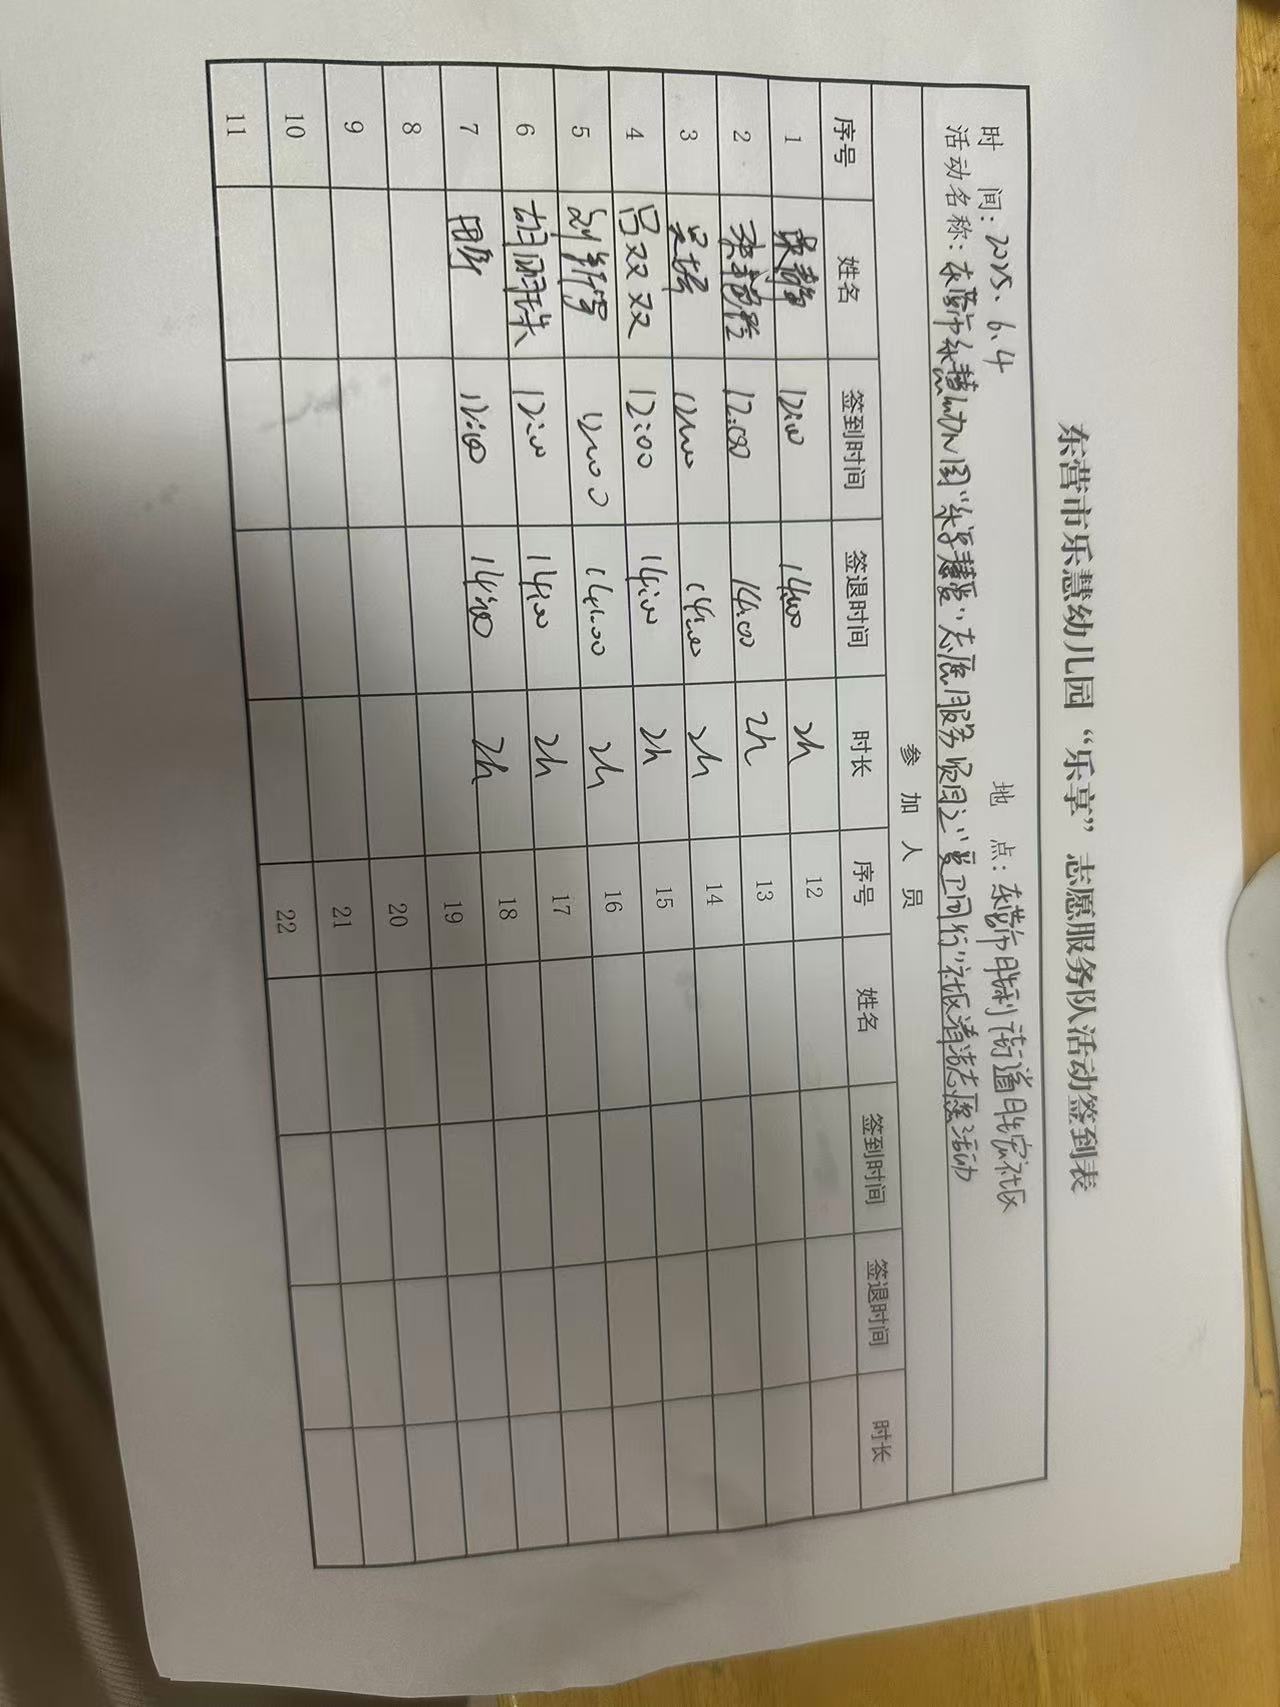 东营市乐慧幼儿园“乐享”志愿服务队活动签到表
时 间：2025.6.4 地 点：东营市胜利街道胜宏社区
活动名称：东营市乐慧幼儿园“乐享慧爱”志愿服务项目之“爱卫同行”社区清洁志愿活动
参 加 人 员
序号 姓名 签到时间 签退时间 时长 序号 姓名 签到时间 签退时间 时长
1 12:00 14:00 2h 12
2 12:00 14:00 2h 13
3 12:00 14:00 2h 14
4 吕双双 12:00 14:00 2h 15
5 12:00 14:00 2h 16
6 胡明珠 12:00 14:00 2h 17
7 12:00 14:00 2h 18
8 19
9 20
10 21
11 22